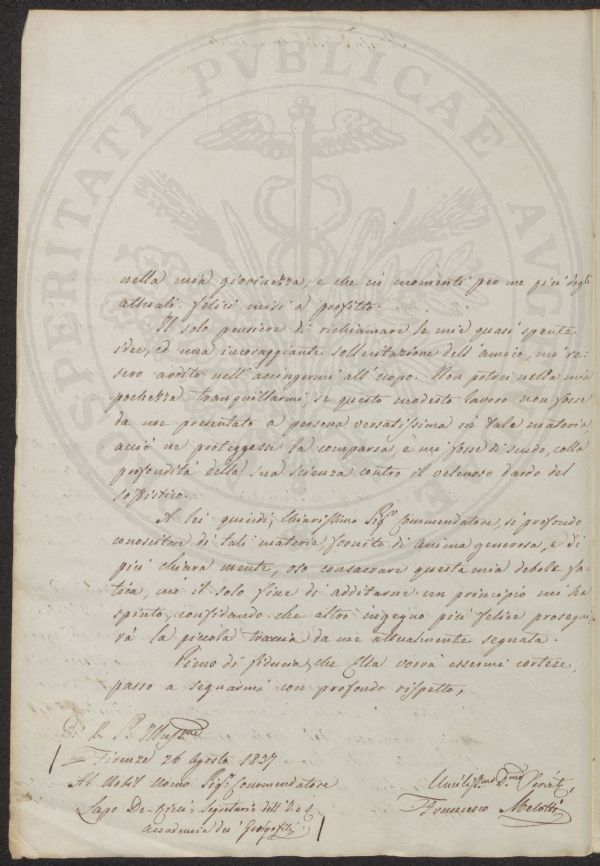 PROSPERITATI PVBLICAE AVGENDAE
nella mia giovinezza, e che in momenti per me più degli
attuali felici misi a profitto.
Il solo pensiere di richiamare le mie quasi spente
idee, ed una incoraggiante sollecitazione dell'amico, mi re-
sero ardito nell'accingermi all'uopo. Non potrei nella mia
pochezza tranquillarmi se questo modesto lavoro non fosse
da me presentato a persona versatissima in tale materia
acciò ne proteggesse la comparsa e mi fosse di scudo, colla
profondità della sua scienza contro il velenoso dardo del
sofistico.
A lei quindi, Chiarissimo Sigre Commendatore, sì profondo
conoscitore di tali materie fornito di anima generosa, e di
più chiara mente, oso consacrare questa mia debole fa-
tica, cui il solo fine di additarne un principio mi ha
spinto, confidando che altro ingegno più felice prosegui-
rà la piccola traccia da me attualmente segnata.
Pieno di fiducia, che Ella vorrà essermi cortese,
passo a segnarmi con profondo rispetto,
Di V. S. Illma
Firenze 26 Agosto 1837
Al Nobil Uomo Sigr. Commendatore
Lapo De-Ricci Segretario dell'I. e R.
Accademia dei Georgofili.
Umilissmo Dmo Servit.
Francesco Melotti